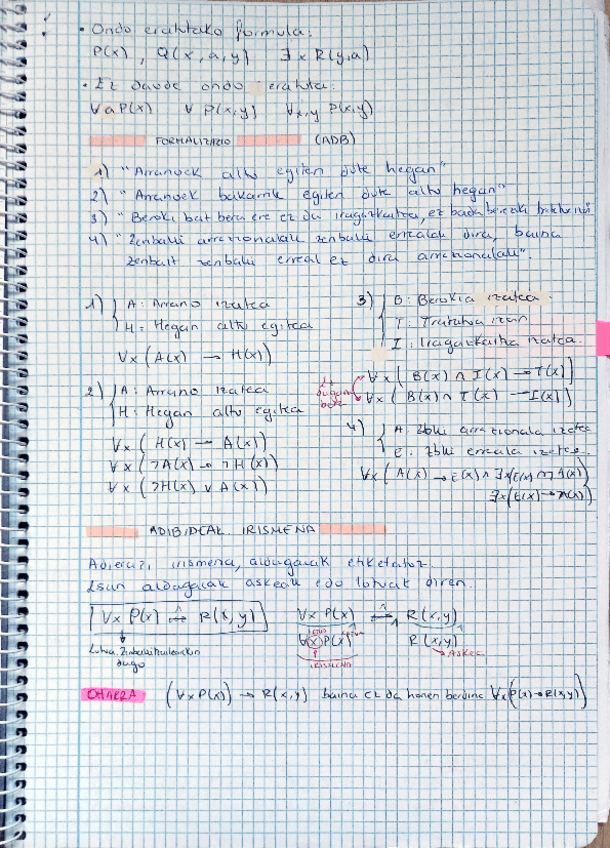 • Ondo eratutako formula:
P(x) , Q(x,a,y) ∃x R(y,a)
• Ez daude ondo eratuta:
∀a P(x) ∀ P(x,y) ∀x,y P(x,y)
FORMALIZAZIO (ADB)
1) "Arranoek altu egiten dute hegan"
2) "Arranoek bakarrik egiten dute altu hegan"
3) "Beroki bat bera ere ez da iragazkaitza, ez bada bereziki
4) "Zenbaki arrazionalak zenbaki errealak dira, baina
zenbait zenbaki erreal ez dira arrazionalak".
1) { A: Arrano izatea
H = Hegan altu egitea
∀x (A(x) → H(x))
2) { A: Arrano izatea
H: Hegan altu egitea
∀x (H(x) → A(x))
∀x (¬A(x) → ¬H(x))
∀x (¬H(x) ∨ A(x))
3) { B: Berokia izatea.
T: Tratatua izan
I: Iragazkaitza izatea.
∀x (B(x) ∧ I(x) → T(x))
∀x (B(x) ∧ T(x) → I(x))
4) { A: Zbki arrazionala izatea
E: Zbki erreala izatea.
∀x (A(x) → E(x) ∧ ∃x(E(x) ∧ ¬A(x))
∃x(E(x) → A(x))
ADIBIDEAK. IRISMENA
Adierazi irismena, aldagaiak etiketatuz.
Esan aldagaiak askeak edo lotuak diren.
∀x P(x) → R(x,y)
∀x P(x) → R(x,y)
∀x P(x) R(x,y)
Askea
IRISMENA
OHARRA (∀x P(x)) → R(x,y) baina ez da honen berdina ∀x(P(x)→R(x,y))